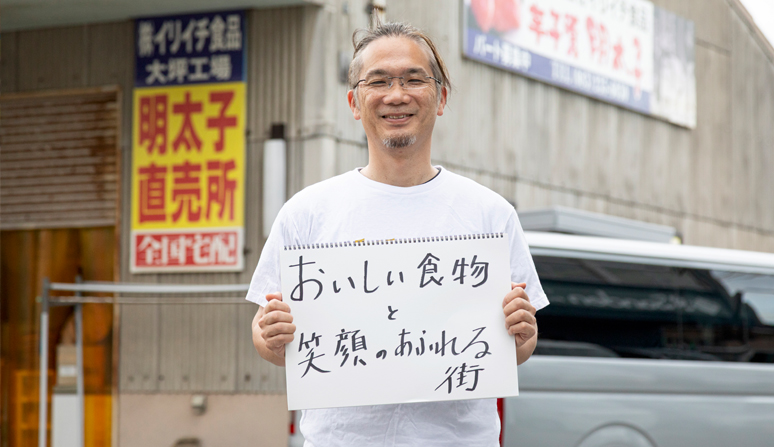 ㈱イリイチ食品
大坪工場
明太子
直売所
全国宅配
パート募集中
おいしい食物
と
笑顔のあふれる
街